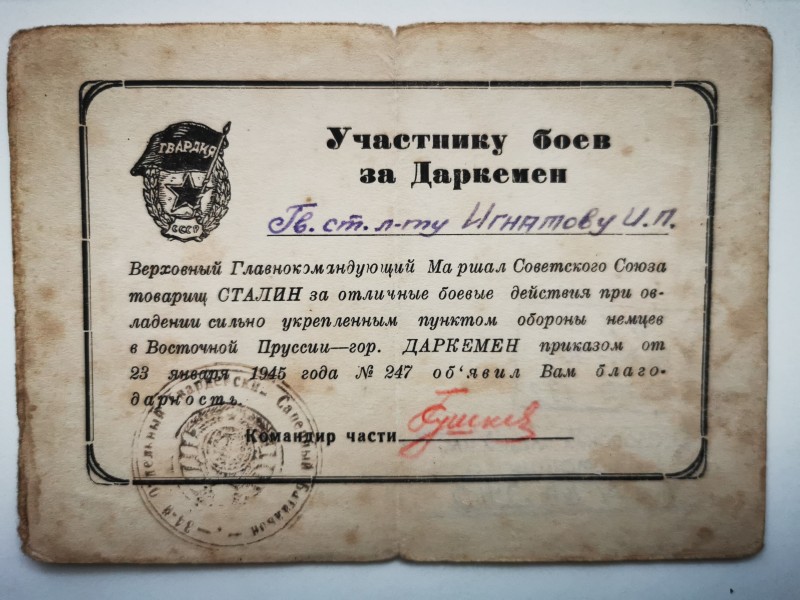 ГВАРДИЯ
СССР
Участнику боев
за Даркемен
Гв. ст. л-ту Игнатову И.П.
Верховный Главнокомандующий Маршал Советского Союза
товарищ СТАЛИН за отличные боевые действия при ов-
ладении сильно укрепленным пунктом обороны немцев
в Восточной Пруссии—гор. ДАРКЕМЕН приказом от
23 января 1945 года № 247 об‘явил Вам благо-
дарность.
Командир части
31-й Отдельный Гвардейский Саперный Батальон